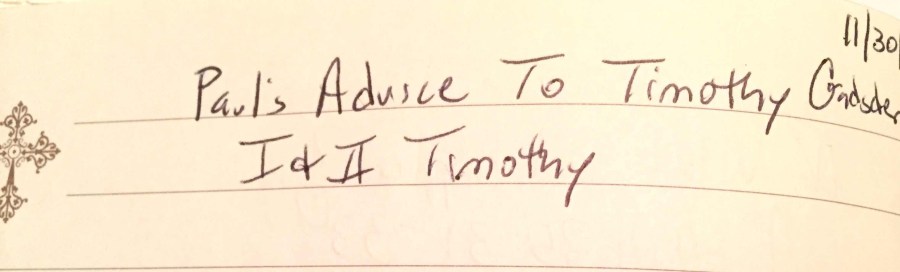 11/30/
Paul's Advice To Timothy Gadsden
I & II Timothy